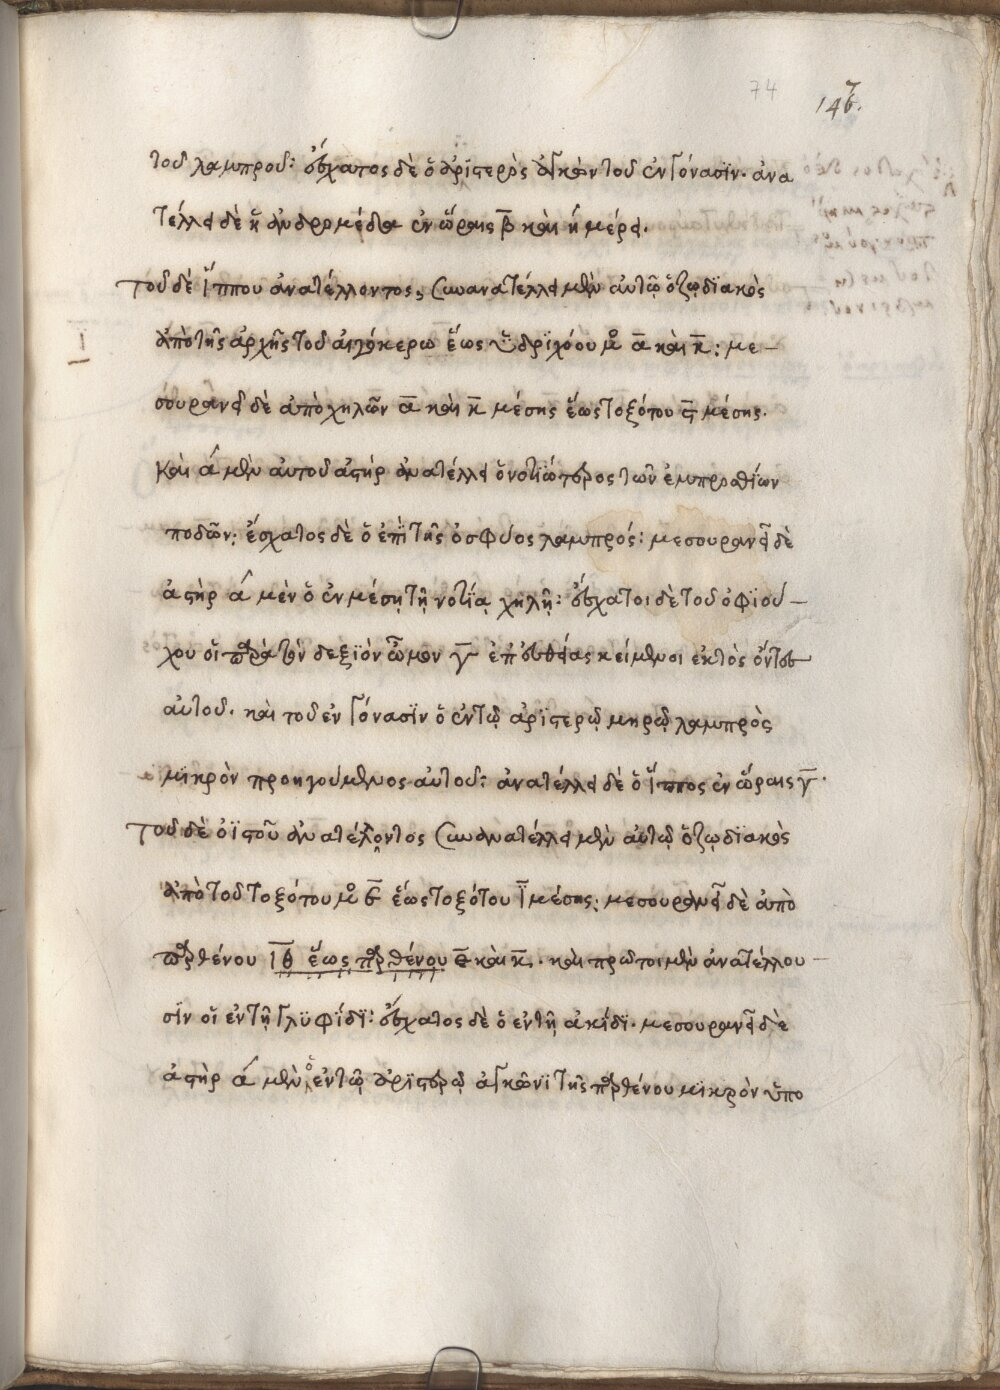 74
147.
τοῦ λαμπροῦ: ἔσχατος δὲ ὁ ἀρϊστερὸς ἀγκὼν τοῦ ἐν γόνασϊν. ἀνα
τέλλει δὲ ἡ ἀνδρομέδα ἐν ὥραις β̅ καὶ ἡμέρει.
Τοῦ δὲ ἵππου ἀνατέλλοντος, συνανατέλλει μὲν αὐτῷ ὁ ζῳδϊακὸς
ἀπὸ τῆς ἀρχῆς τοῦ αἰγόκερω ἕως ὑδρϊχόου μο α̅ καὶ κ̅: με-
σουρανεῖ δὲ ἀπὸ χηλῶν α̅ καὶ κ̅ μέσης ἕως τοξότου ς̅ μέσης.
Καὶ α´ μὲν αὐτοῦ ἀστὴρ ἀνατέλλει ὁ νοτϊώτερος τῶν ἐμπροσθίων
ποδῶν: ἔσχατος δὲ ὁ ἐπῒ τῆς ὀσφύος λαμπρός: μεσουρανεῖ δὲ
ἀστὴρ α´ μὲν ὁ ἐν μέσῃ τῇ νοτΐᾳ χηλῇ: ἔσχατοι δὲ τοῦ ὀφϊού-
χου οἱ παρὰ τὸν δεξϊὸν ὦμον γ̅ ἐπ᾽ εὐθείας κείμενοι ἐκτὸς ὄντες
αὐτοῦ. καὶ τοῦ ἐν γόνασϊν ὁ ἐν τῷ ἀρϊστερῷ μηρῷ λαμπρὸς
μϊκρὸν προηγούμενος αὐτοῦ: ἀνατέλλει δὲ ὁ ἵππος ἐν ὥραις γ̅.
Τοῦ δὲ ὀϊστοῦ ἀνατέλλοντος συνανατέλλει μὲν αὐτῷ ὁ ζῳδϊακὸς
ἀπὸ τοῦ τοξότου μο ϛ̅ ἕως τοξότου ϊ̅ μέσης: μεσουρανεῖ δὲ ἀπὸ
παρθένου ιθ̅ ἕως παρθένου ε̅ καὶ κ̅. καὶ πρῶτοι μὲν ἀνατέλλου-
σϊν οἱ ἐν τῇ γλϋφίδϊ: ἔσχατος δὲ ὁ ἐν τῇ ἀκίδϊ. μεσουρανεῖ δὲ
ἀστὴρ α´ μὲν ὁ ἐν τῷ ἀρϊστερῷ ἀγκῶνϊ τῆς παρθένου μϊκρὸν ὑπο